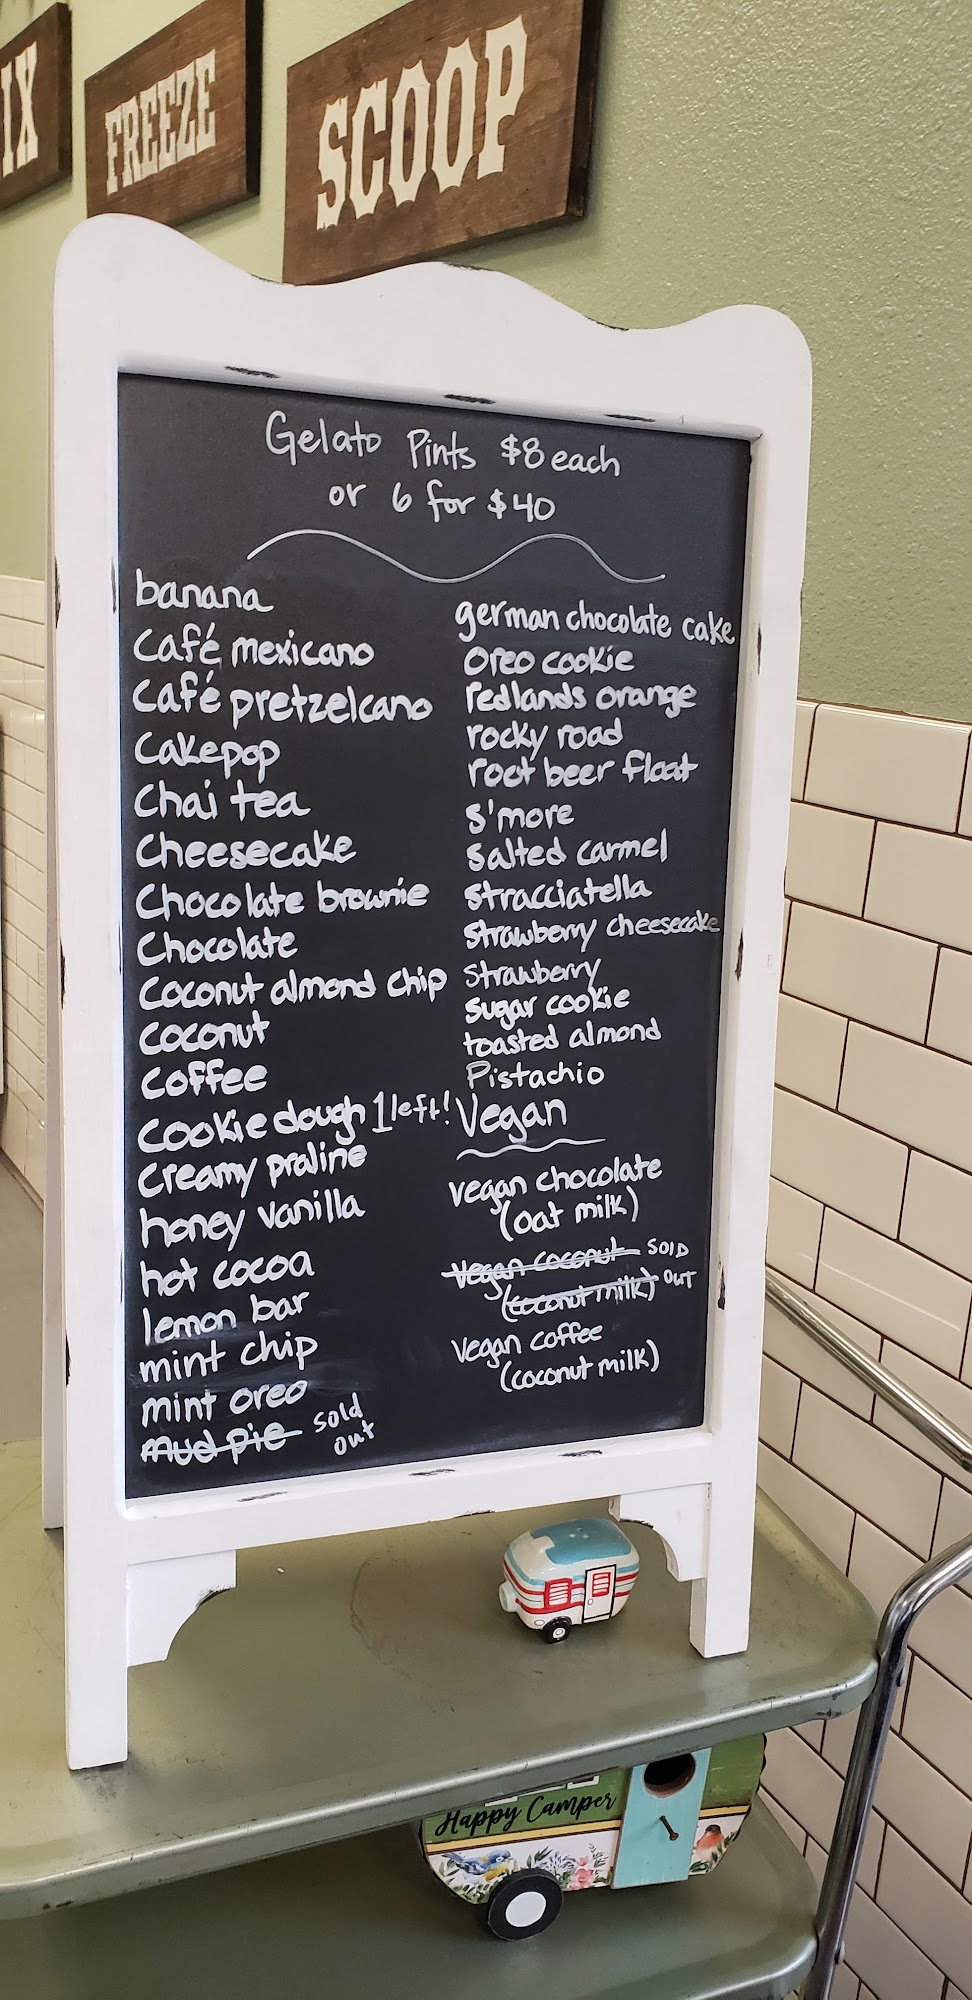 IX
FREEZE
SCOOP
Gelato Pints $8 each
or 6 for $40
banana
Café mexicano
Café pretzelcano
Cakepop
Chai tea
Cheesecake
Chocolate brownie
Chocolate
Coconut almond chip
coconut
coffee
cookie dough 1 left!
creamy praline
honey vanilla
hot cocoa
lemon bar
mint chip
mint oreo
mud pie sold
out
german chocolate cake
oreo cookie
redlands orange
rocky road
root beer float
s'more
salted carmel
stracciatella
strawberry cheesecake
strawberry
sugar cookie
toasted almond
Pistachio
Vegan
vegan chocolate
(oat milk)
vegan coconut SOLD
(coconut milk) OUT
vegan coffee
(coconut milk)
Happy Camper